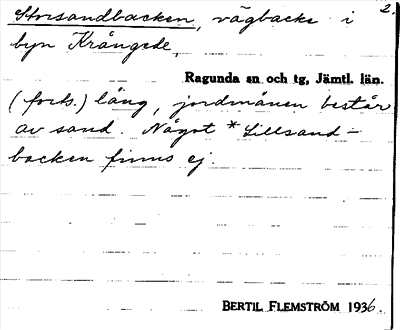 Storsandbacken, vägbacke i 2.
byn Krångede,
Ragunda sn och tg, Jämtl. län.
(forts.) lång, jordmånen består
av sand. Något *Lillsand-
backen finns ej.
BERTIL FLEMSTRÖM 1936.